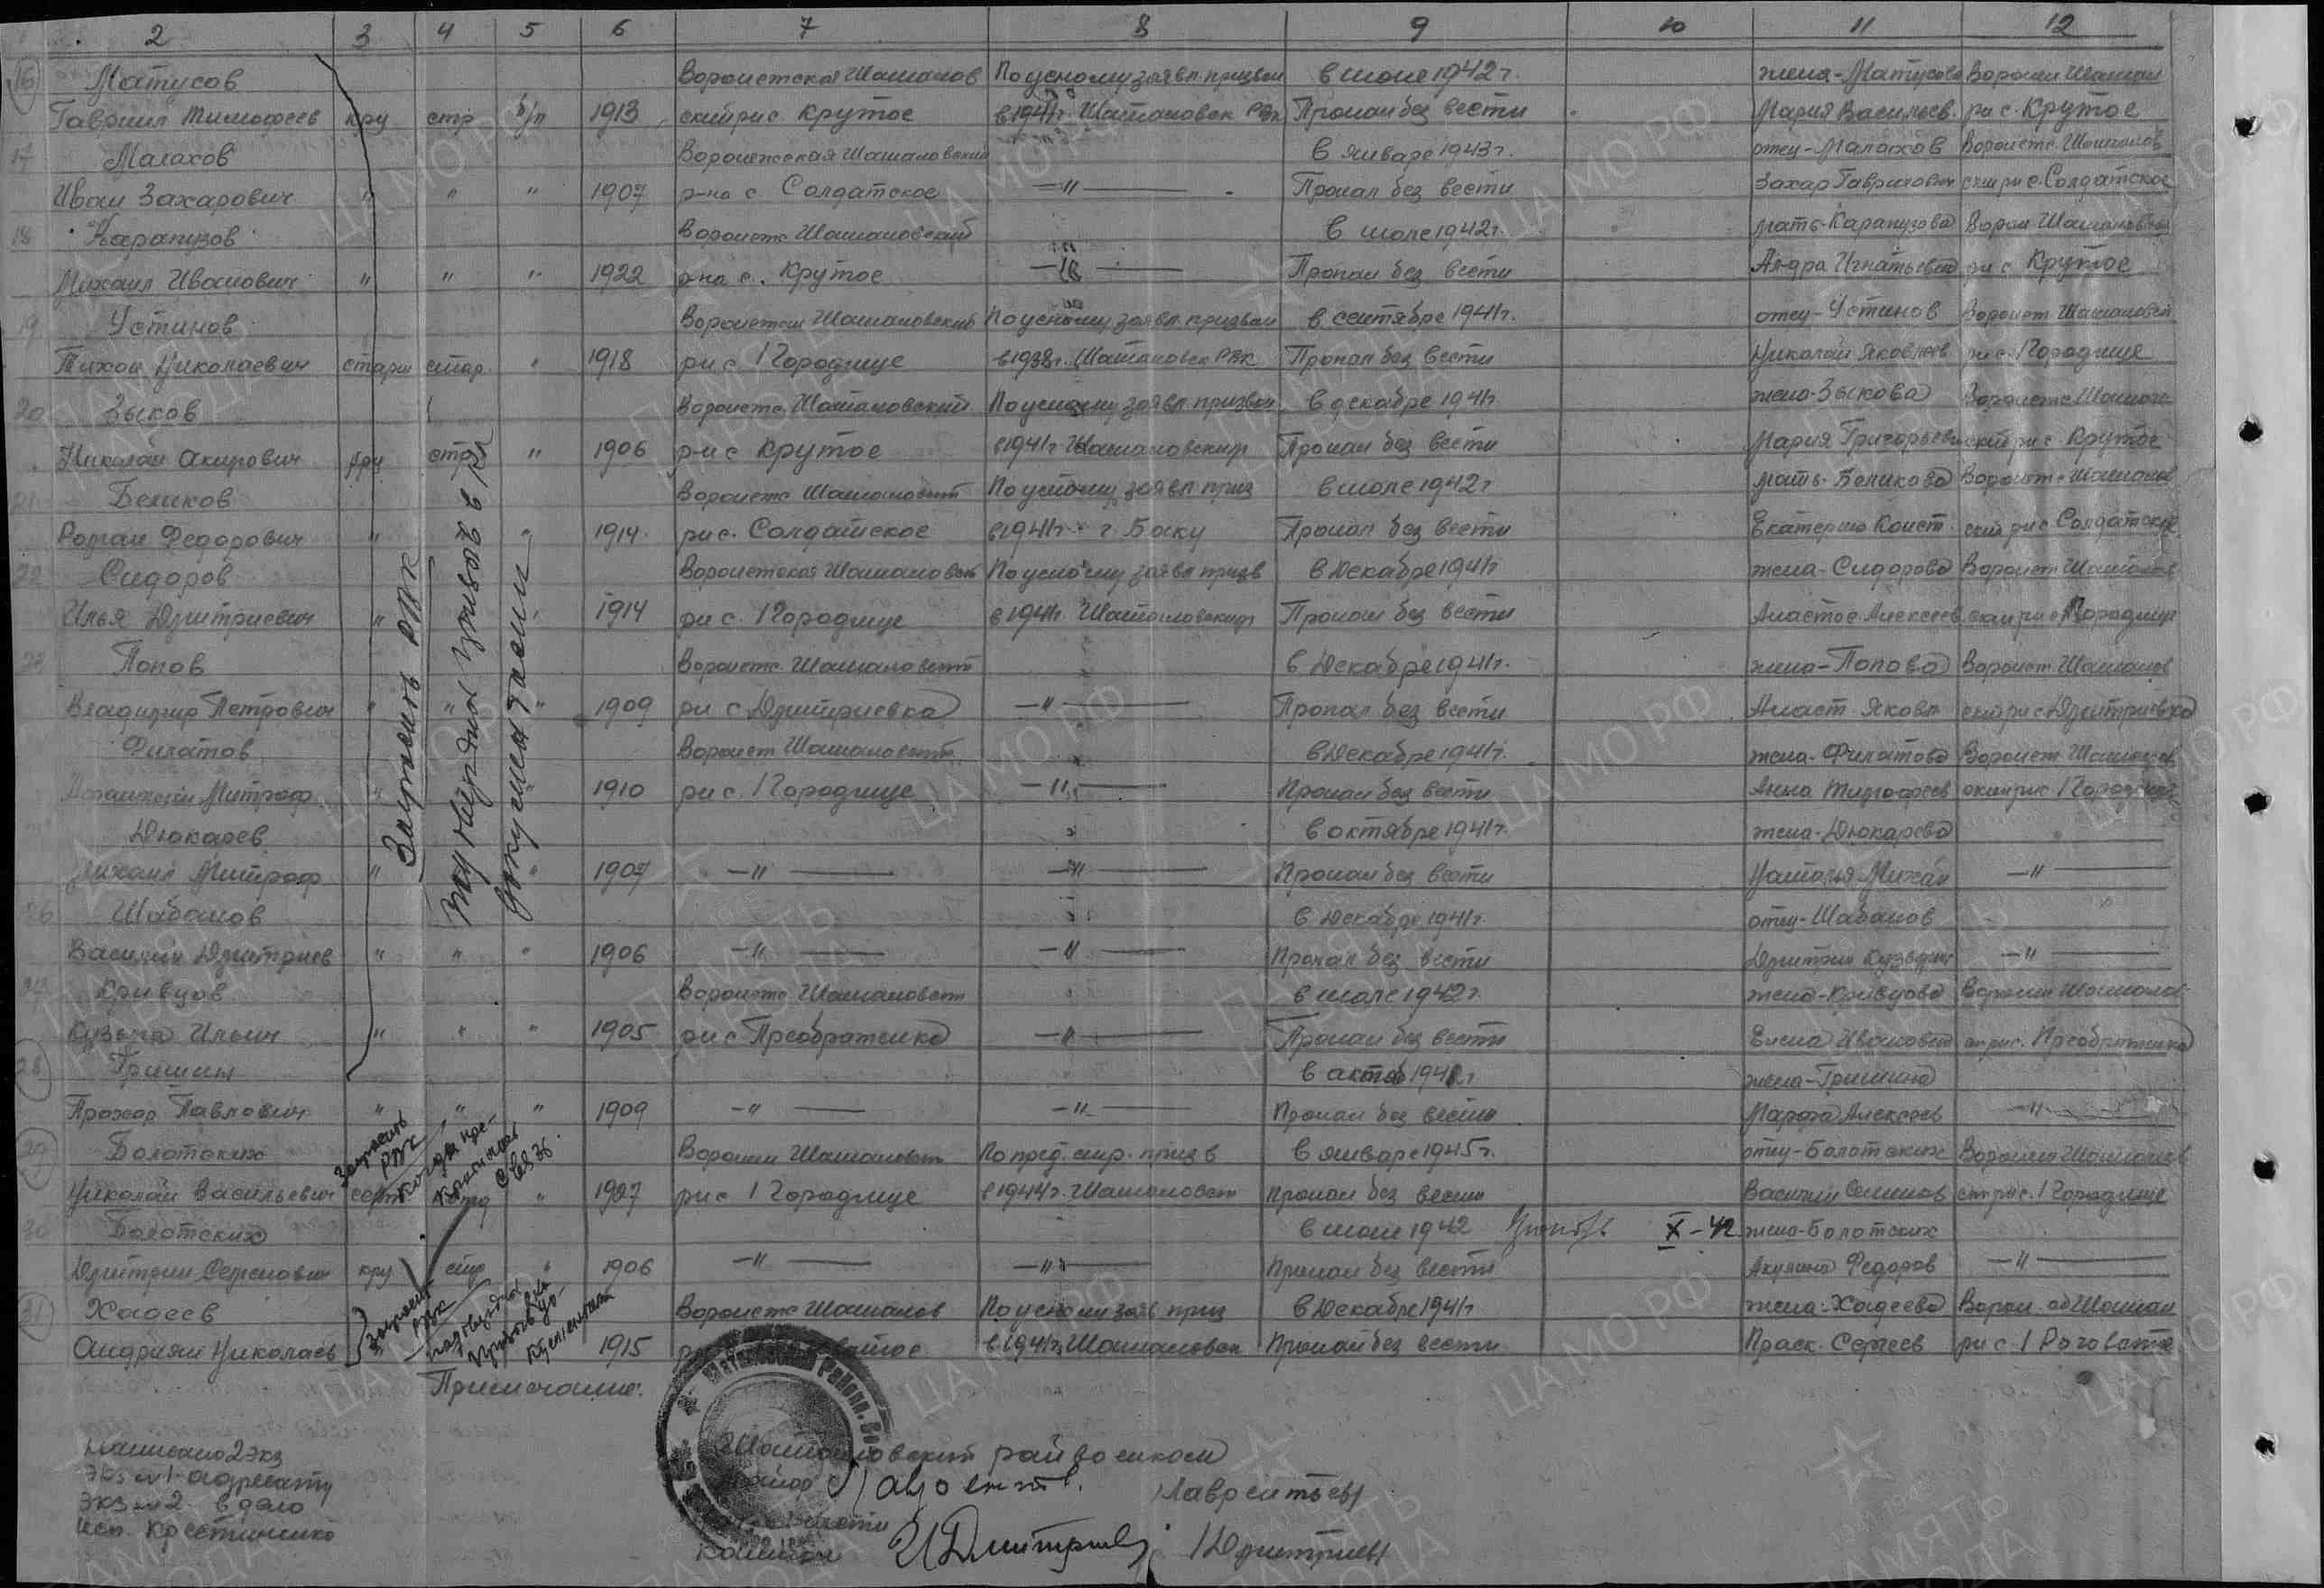 2 3 4 5 6 7 8 9 10 11 12
16 Матусов Воронежская Шаталов По усному заявл. призван в июле 1942 г. жена-Матусова Воронеж Шатал
Гавриил Тимофеев кр стр б/п 1913 ский р-н с Крутое в 1941г. Шаталовск РВК Пропал без вести Мария Васильев. р-н с. Крутое
17 Малахов Воронежская Шаталовский в январе 1943 г. отец-Малахов Воронежс. Шаталов
Иван Захарович " " " 1907 р-на с. Солдатское —"— Пропал без вести Захар Гаврилович ский р-н с. Солдатское
18 Карапузов Воронежс Шаталовский в июле 1942 г. мать-Карапузова Ворон Шаталовский
Михаил Иванович " " " 1922 р-на с. Крутое —"— Пропал без вести Ал-дра Игнатьевна р-н с Крутое
19 Устинов Воронежская Шаталовский По усному заявл. призван в сентябре 1941г. отец-Устинов Воронеж Шаталовский
Тихон Николаевич старш стар. " 1918 р-н с 1 Городище в 1938г. Шаталовск РВК Пропал без вести Николай Яковлев р-н с. 1 Городище
20 Зыков Воронежс. Шаталовский По усному заявл призван в декабре 1941г жена-Зыкова Воронежс Шатало
Николай Акирович кр стр " 1906 р-н с Крутое в 1941г Шаталовским Пропал без вести Мария Григорьев ский р-н с Крутое
21 Беликов Воронежс Шаталовский По усному заявл приз в июле 1942 г мать-Беликова Воронежс Шаталов
Роман Федорович " " 1914 р-н с. Солдатское в 1941г. г. Баку Пропал без вести Екатерина Конст. ский р-н с Солдатское
22 Сидоров Воронежская Шаталовский По усному заявл призв в декабре 1941г жена-Сидорова Воронеж Шаталов
Илья Дмитриевич " " 1914 р-н с. 1 Городище в 1941г. Шаталовским Пропал без вести Анастас Алексеев ский р-н с 1 Городище
23 Попов Воронежс. Шаталовский в Декабре 1941г. жена-Попова Воронеж Шаталов
Владимир Петрович " " " 1909 р-н с Дмитриевка —"— Пропал без вести Анаст Яковл ский р-н с Дмитриевка
Филатов Воронеж Шаталовский в Декабре 1941г. жена-Филатова Воронеж Шаталов
Митроф " " 1910 р-н с. 1 Городище —"— Пропал без вести Анна Тимофеев ский р-н с 1 Городище
Дюкарев в октябре 1941г. жена-Дюкарева
Михаил Митроф " " 1907 —"— —"— Пропал без вести Наталья Михай —"—
26 Шабанов в Декабре 1941г. отец-Шабанов
Василий Дмитриев " " " 1906 —"— —"— Пропал без вести Дмитрий Кузьмич —"—
27 Кривцов Воронежс Шаталовский в июле 1942 г. жена-Кривцова Воронеж Шаталов
Кузьма Ильич " " " 1905 р-н с Преображенка —"— Пропал без вести Елена Ивановна р-н с. Преображенка
28 Гришин в октяб 194 г жена-Гришина
Прохор Павлович " " " 1909 —"— —"— Пропал без вести Марфа Алексеев —"—
29 Болотских Воронеж Шаталовский По пред. спр. призв в январе 1945 г. отец-Болотских Воронеж Шаталов
Николай Васильевич серж стр " 1927 р-н с 1 Городище в 1944г. Шаталовск Пропал без вести Василий Семенов р-н с. 1 Городище
30 Болотских в июле 1942 X-42 жена-Болотских
Дмитрий Семенович кр стр " 1906 —"— —"— Пропал без вести Акулина Федоров —"—
31 Хадеев Воронежс Шаталов По усному заяв приз в Декабре 1941г жена-Хадеева Ворон. об Шатал
Андриян Николаев 1915 в 1941г. Шаталовск Пропал без вести Праск. Сергеев р-н с. 1 Роговатое
Запросить РВК
подтвердил призыв в КА
документами
Запросить РВК
когда прекратилась связь
запросить РВК
подтвердил призыв документами
Примечание:
Написано 2 экз
Экз №1-адресату
Экз №2 в дело
исп. Крестинино
Шаталовский райвоенком
майор /Лаврентьев/
части
капитан /Дмитриев/
ЦА МО РФ
ПАМЯТЬ НАРОДА